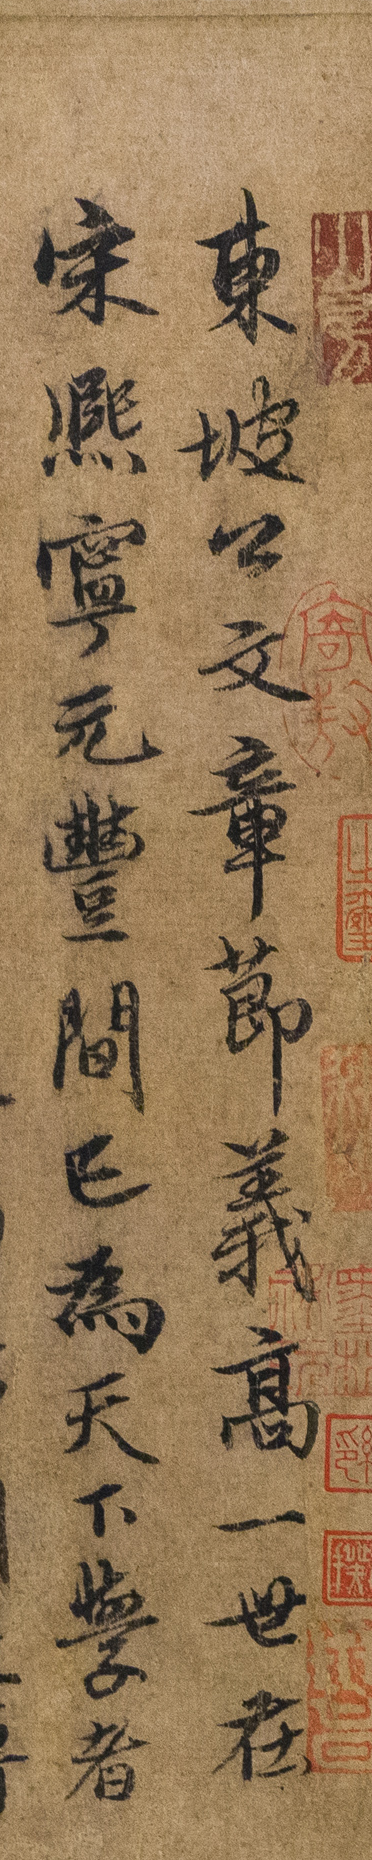 東坡公文章節義高一世在
宋熈寧元豐間已為天下學者